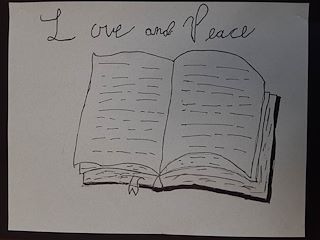 Love and Peace